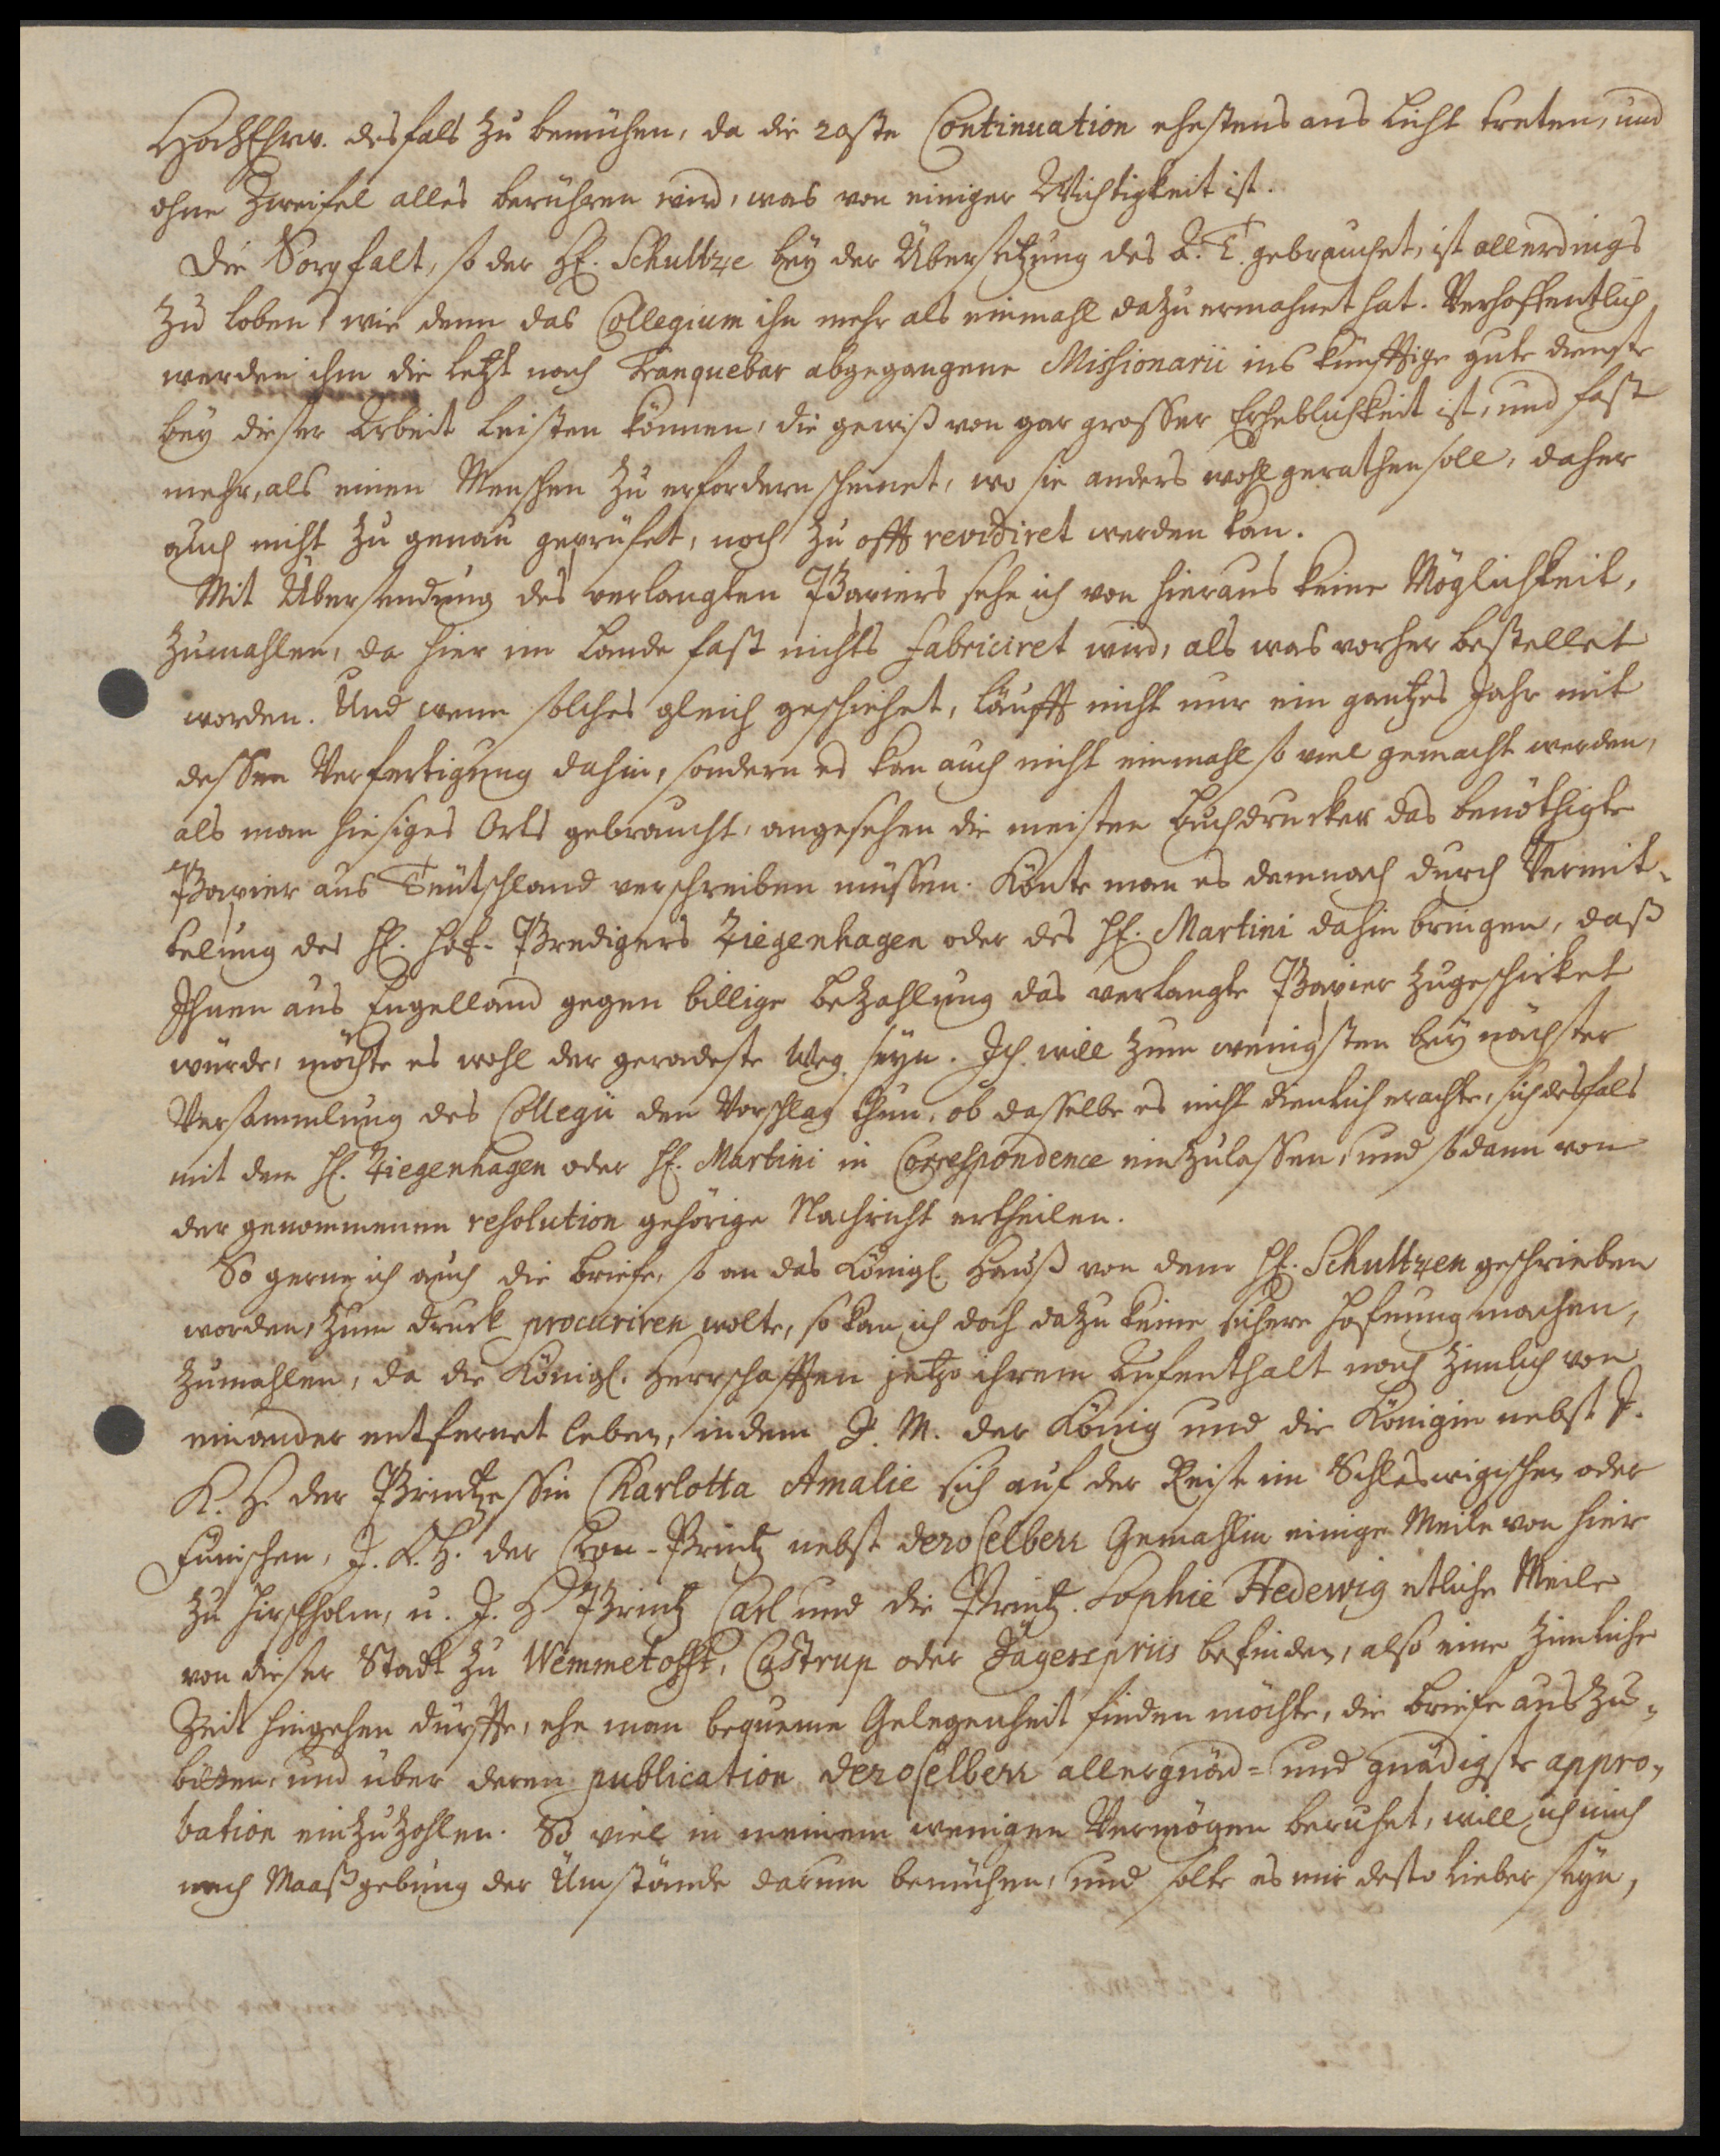 HochEhrw. desfals zu bemühen, da die 20ste Continuation ehestens ans Licht treten, und
ohne Zweifel alles berühren wird, was von einiger Wichtigkeit ist.
Die Sorgfalt, so der H. Schultze bey der Übersetzung des A. T. gebrauchet, ist allerdings
zu loben, wie denn das Collegium ihn mehr als einmahl dazu ermahnet hat. Verhoffentlich
werden ihm die letzt nach Tranquebar abgegangene Missionarii ins künfftige gute dienste
bey dieser Arbeit leisten können, die gewiß von gar grosser Erheblichkeit ist, und fast
mehr, als einen Menschen zu erfordern scheinet, wo sie anders wohl gerathen soll, daher
auch nicht zu genau geprüfet, noch zu offt revidiret werden kan.
Mit Übersendung des verlangten Papiers sehe ich von hieraus keine Möglichkeit,
zumahlen, da hier im Lande fast nichts fabriciret wird, als was vorher bestellet
worden. Und wenn solches gleich geschiehet, läufft nicht nur ein gantzes Jahr mit
dessen Verfertigung dahin, sondern es kan auch nicht einmahl so viel gemacht werden,
als man hiesiges Orts gebraucht, angesehen die meisten Buchdrucker das benöthigte
Papier aus Teutschland verschreiben müssen. Könte man es demnach durch Vermit-
telung des H. Hof-Predigers Ziegenhagen oder des H. Martini dahin bringen, daß
Ihnen aus Engelland gegen billige Bezahlung das verlangte Papier zugeschicket
würde, möchte es wohl der geradeste Weg seyn. Ich will zum wenigsten bey nächster
Versammlung des Collegii den Vorschlag thun, ob dasselbe es nicht dienlich erachte, sich desfals
mit dem H. Ziegenhagen oder H. Martini in Correspondence einzulassen, und sodann von
der genommenen resolution gehörige Nachricht ertheilen.
So gerne ich auch die Briefe, so an das Königl. Hauß von dem H. Schultzen geschrieben
worden, zum Druck procuriren wolte, so kan ich doch dazu keine sichere Hofnung machen,
zumahlen, da die Königl. Herrschafften jetzo ihrem Aufenthalt nach zimlich von
einander entfernet leben, indem J. M. der König und die Königin nebst J.
K. H. der Printzessin Charlotta Amalie sich auf der Reise im Schleswigschen oder
Funischen, J. K. H. der Cron-Printz nebst deroselben Gemahlin einige Meile von hier
zu Hirschholm, u. J. H. Printz Carl und die Printz. Sophie Hedewig etliche Meile
von dieser Stadt zu Wemmetofft, Castrup oder Jägerspriis befinden, also eine zimliche
Zeit hingehen dürffte, ehe man bequeme Gelegenheit finden möchte, die Briefe auszu-
bitten, und über deren publication deroselben allergnäd- und gnädigste appro-
bation einzuhohlen. So viel in meinem wenigen Vermögen beruhet, will ich mich
nach Maaßgebung der Umstände darum bemühen, und solte es mir desto lieber seyn,